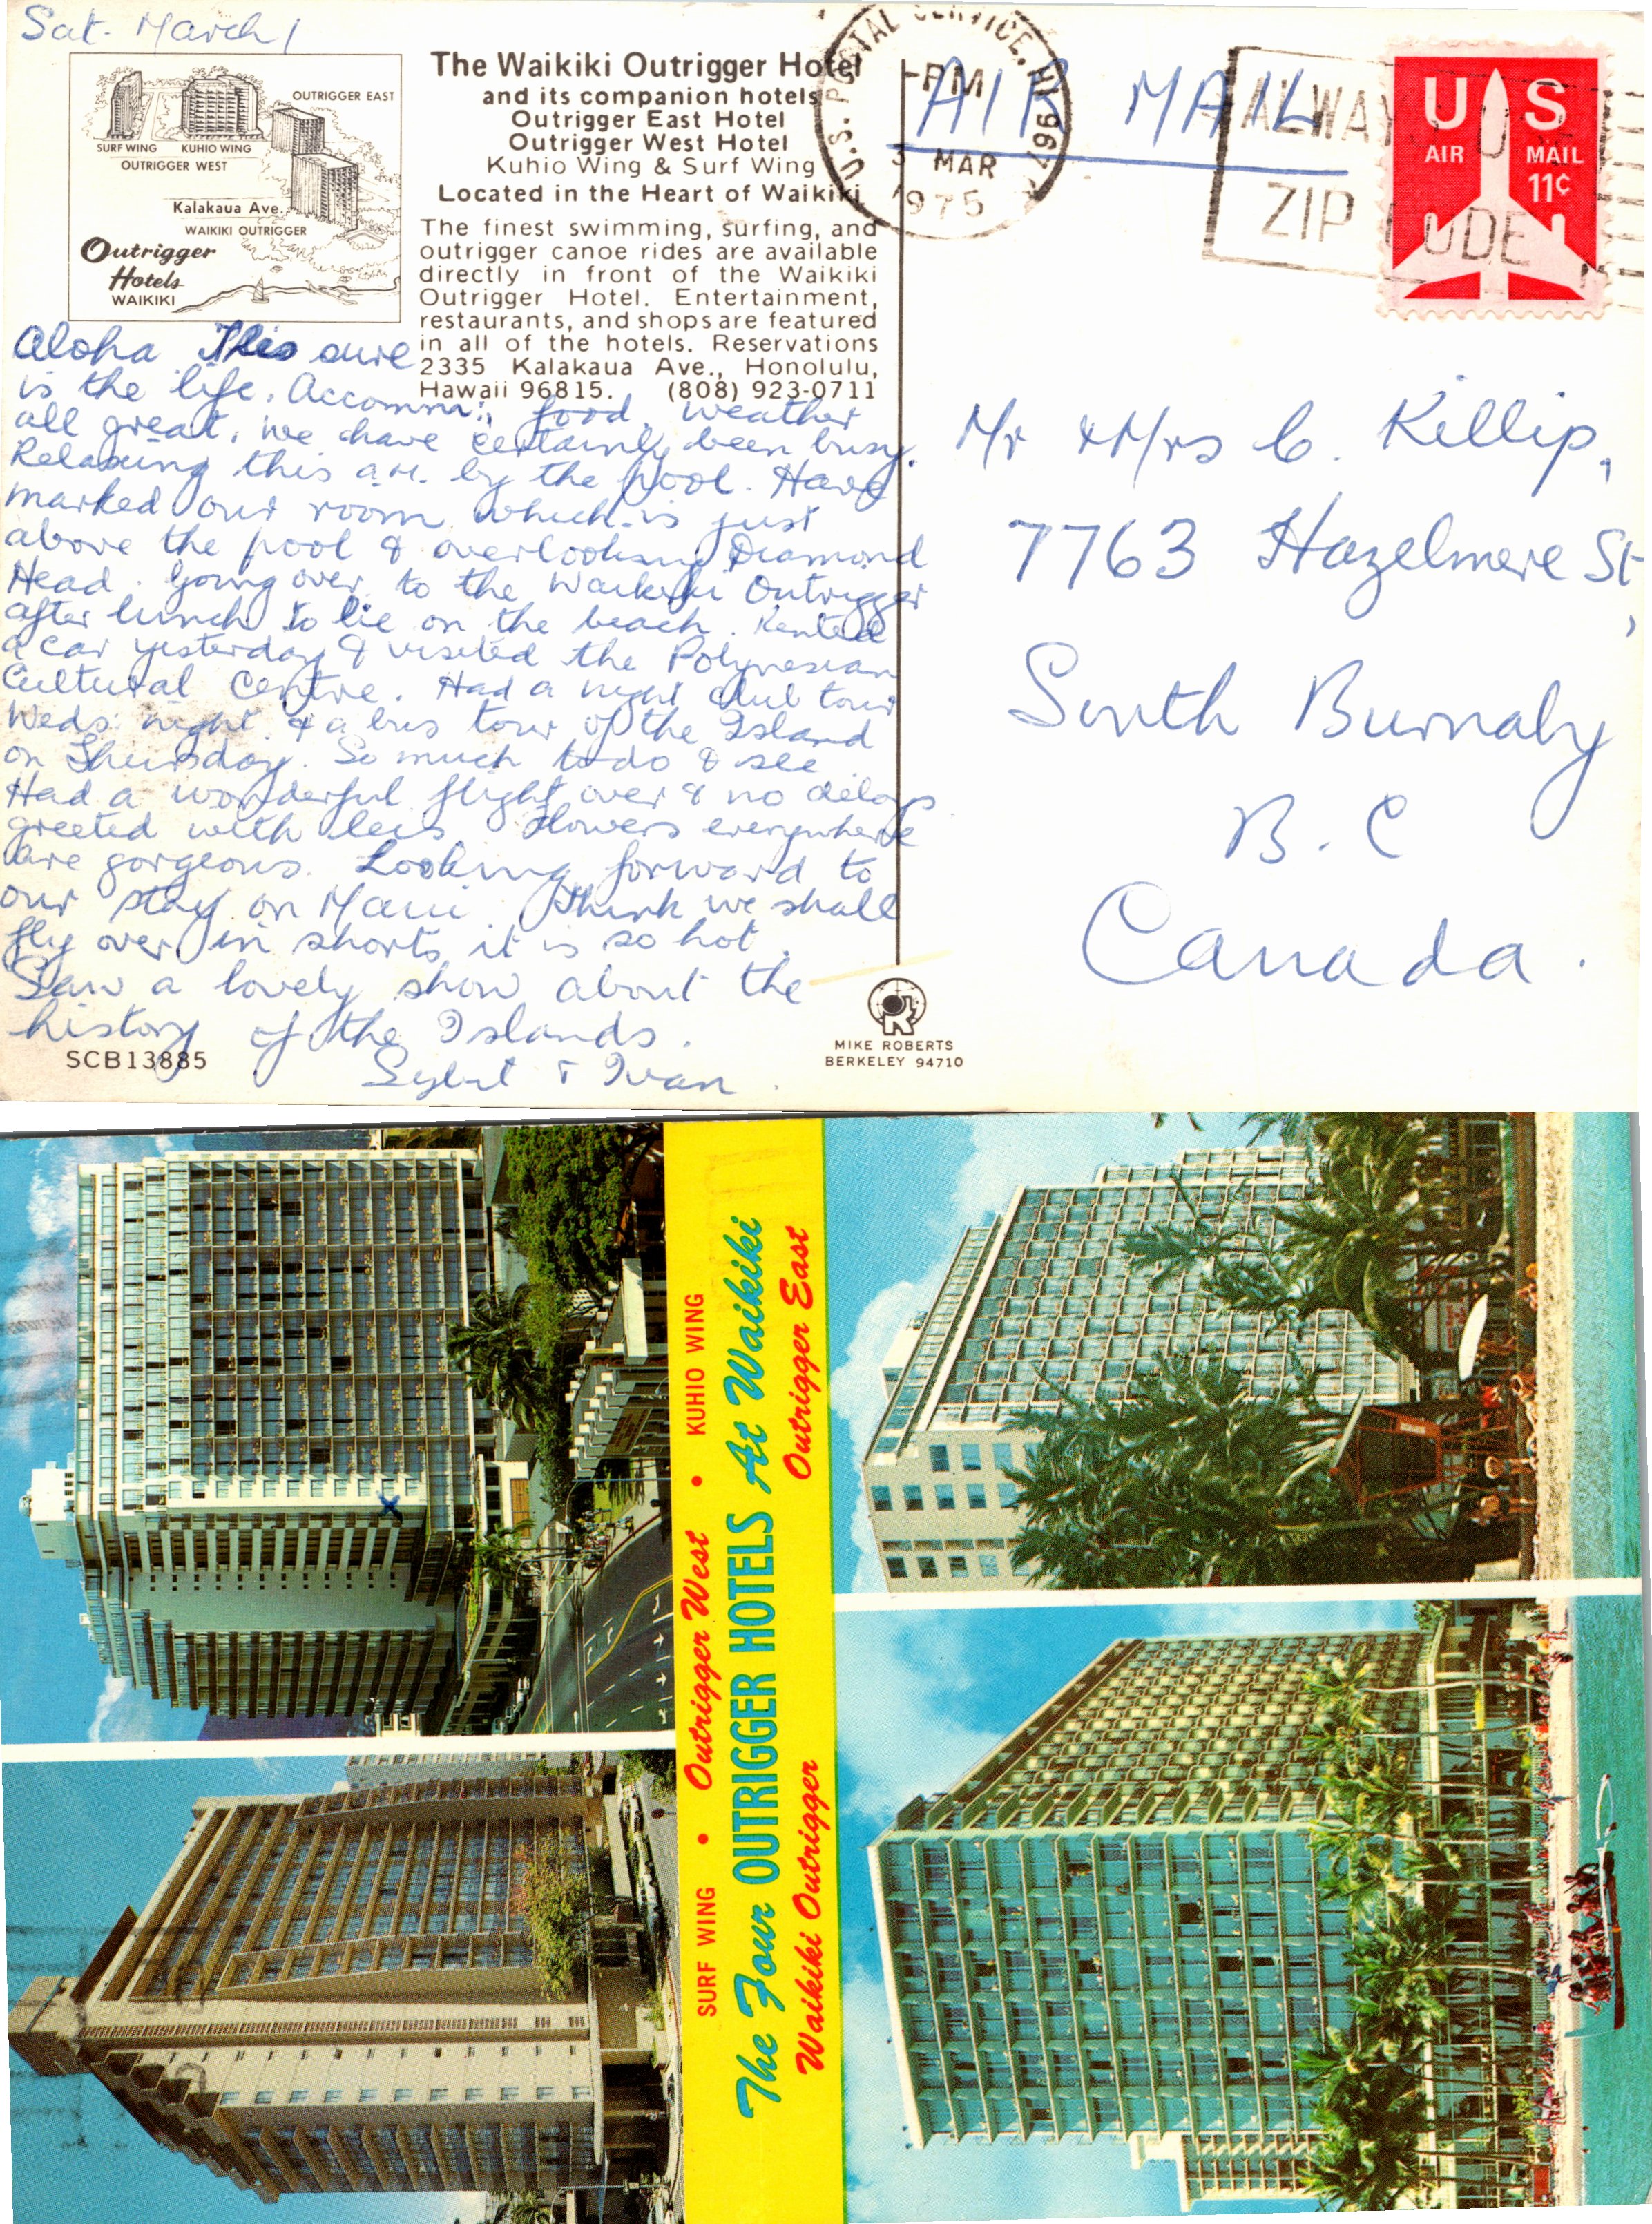 Sat. March 1
OUTRIGGER EAST
SURF WING KUHIO WING
OUTRIGGER WEST
Kalakaua Ave.
WAIKIKI OUTRIGGER
Outrigger
Hotels
WAIKIKI
The Waikiki Outrigger Hotel
and its companion hotels
Outrigger East Hotel
Outrigger West Hotel
Kuhio Wing & Surf Wing
Located in the Heart of Waikiki
The finest swimming, surfing, and
outrigger canoe rides are available
directly in front of the Waikiki
Outrigger Hotel. Entertainment,
restaurants, and shops are featured
in all of the hotels. Reservations
2335 Kalakaua Ave., Honolulu,
Hawaii 96815. (808) 923-0711
Aloha This sure
is the life. Accomm:, food, weather
all great, we have certainly been busy.
Relaxing this a.m. by the pool. Have
marked our room which is just
above the pool & overlooking Diamond
Head. Going over to the Waikiki Outrigger
after lunch to lie on the beach. Rented
a car yesterday & visited the Polynesian
Cultural Centre. Had a night club tour
Weds. night & a bus tour of the Island
on Thursday. So much to do & see.
Had a wonderful flight over & no delays
greeted with leis Flowers everywhere
are gorgeous. Looking forward to
our stay on Maui. Think we shall
fly over in shorts it is so hot.
Saw a lovely show about the
history of the Islands.
Sybil & Ivan.
SCB13885
MIKE ROBERTS
BERKELEY 94710
U.S. POSTAL SERVICE, HI 967
PM
3 MAR
1975
AIR MAIL
ALWAYS U
ZIP CODE
US
AIR MAIL
11¢
Mr & Mrs C. Killip,
7763 Hazelmere St,
South Burnaby
B.C
Canada.
SURF WING • Outrigger West • KUHIO WING
The Four OUTRIGGER HOTELS At Waikiki
Waikiki Outrigger Outrigger East